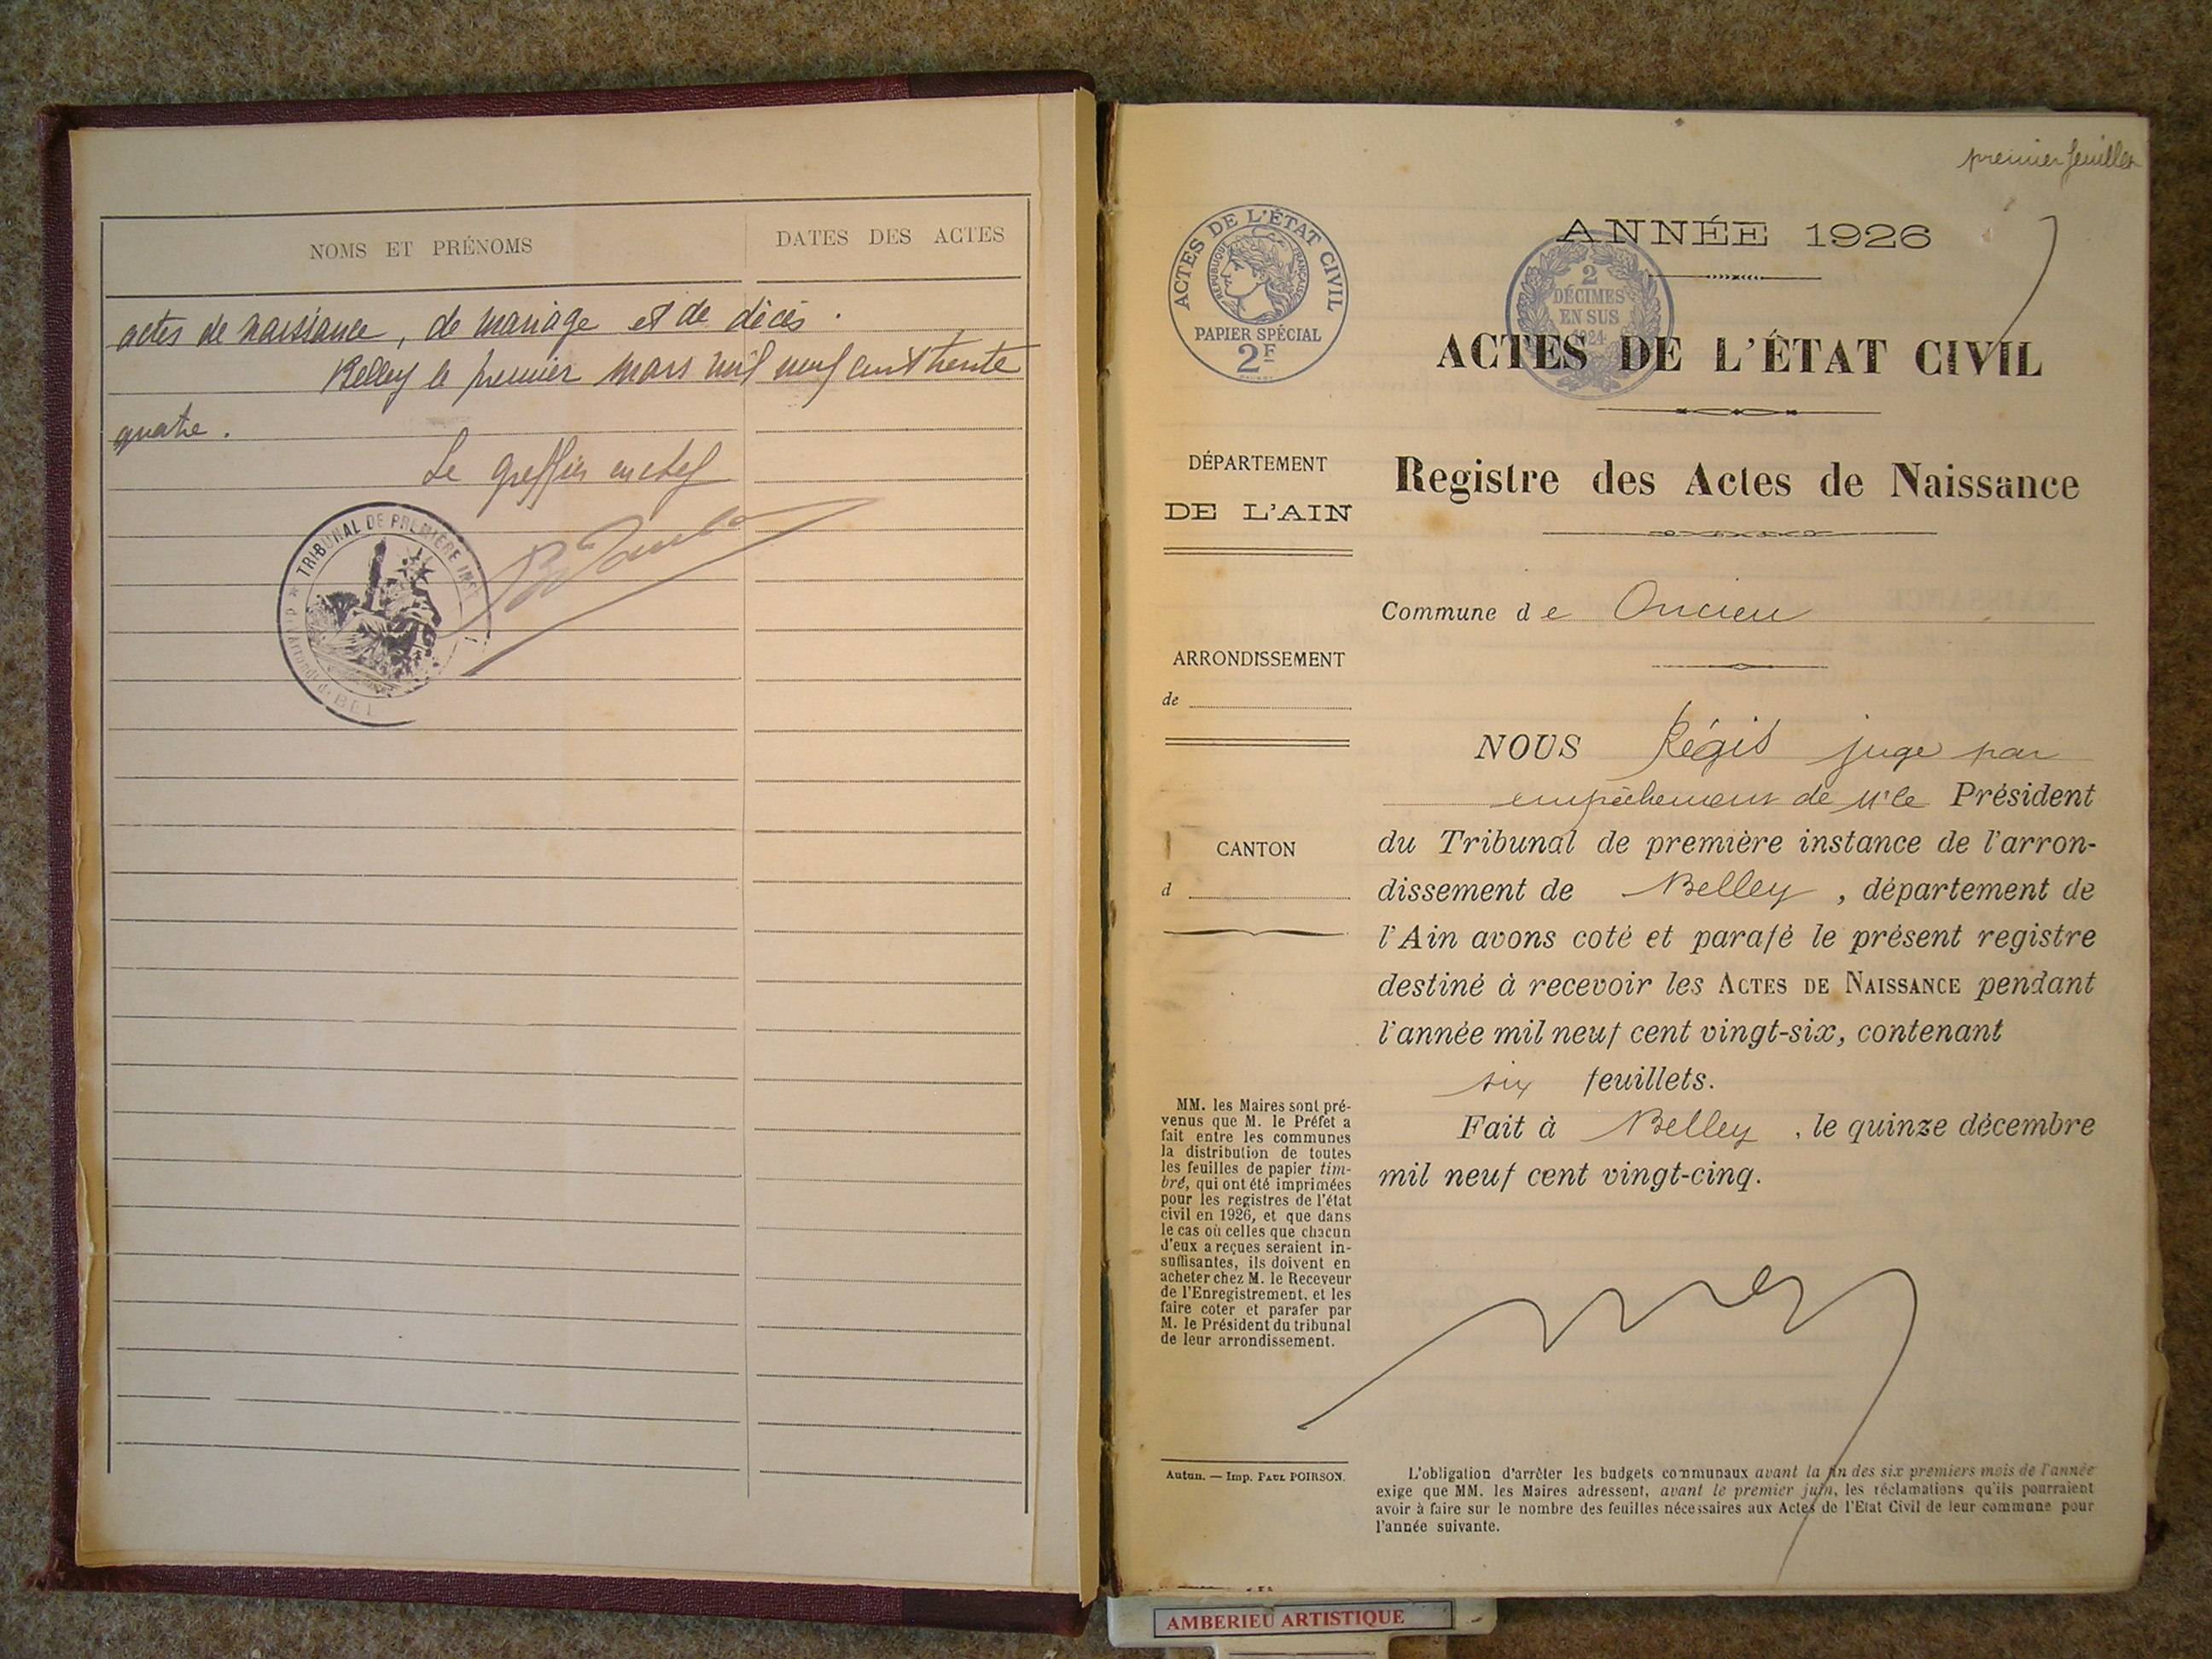 NOMS ET PRÉNOMS
DATES DES ACTES
actes de naissance, de mariage et de décès.
Belley le premier mars mil neuf cent trente
quatre.
Le greffier en chef
TRIBUNAL DE PREMIÈRE INST
premier feuillet
ACTES DE L'ÉTAT CIVIL
RÉPUBLIQUE FRANÇAISE
PAPIER SPÉCIAL
2F
ANNÉE 1926
2
DÉCIMES
EN SUS
1924
ACTES DE L'ÉTAT CIVIL
DÉPARTEMENT
DE L'AIN
Registre des Actes de Naissance
Commune de Oncieu
ARRONDISSEMENT
de
NOUS Régis juge par
empêchement de Mr le Président
du Tribunal de première instance de l'arron-
dissement de Belley, département de
l'Ain avons coté et parafé le présent registre
destiné à recevoir les ACTES DE NAISSANCE pendant
l'année mil neuf cent vingt-six, contenant
six feuillets.
Fait à Belley, le quinze décembre
mil neuf cent vingt-cinq.
CANTON
d
MM. les Maires sont pré-
venus que M. le Préfet a
fait entre les communes
la distribution de toutes
les feuilles de papier tim-
bré, qui ont été imprimées
pour les registres de l'état
civil en 1926, et que dans
le cas où celles que chacun
d'eux a reçues seraient in-
suffisantes, ils doivent en
acheter chez M. le Receveur
de l'Enregistrement, et les
faire coter et parafer par
M. le Président du tribunal
de leur arrondissement.
Autun. — Imp. PAUL POIRSON.
L'obligation d'arrêter les budgets communaux avant la fin des six premiers mois de l'année
exige que MM. les Maires adressent, avant le premier juin, les réclamations qu'ils pourraient
avoir à faire sur le nombre des feuilles nécessaires aux Actes de l'Etat Civil de leur commune pour
l'année suivante.
AMBERIEU ARTISTIQUE